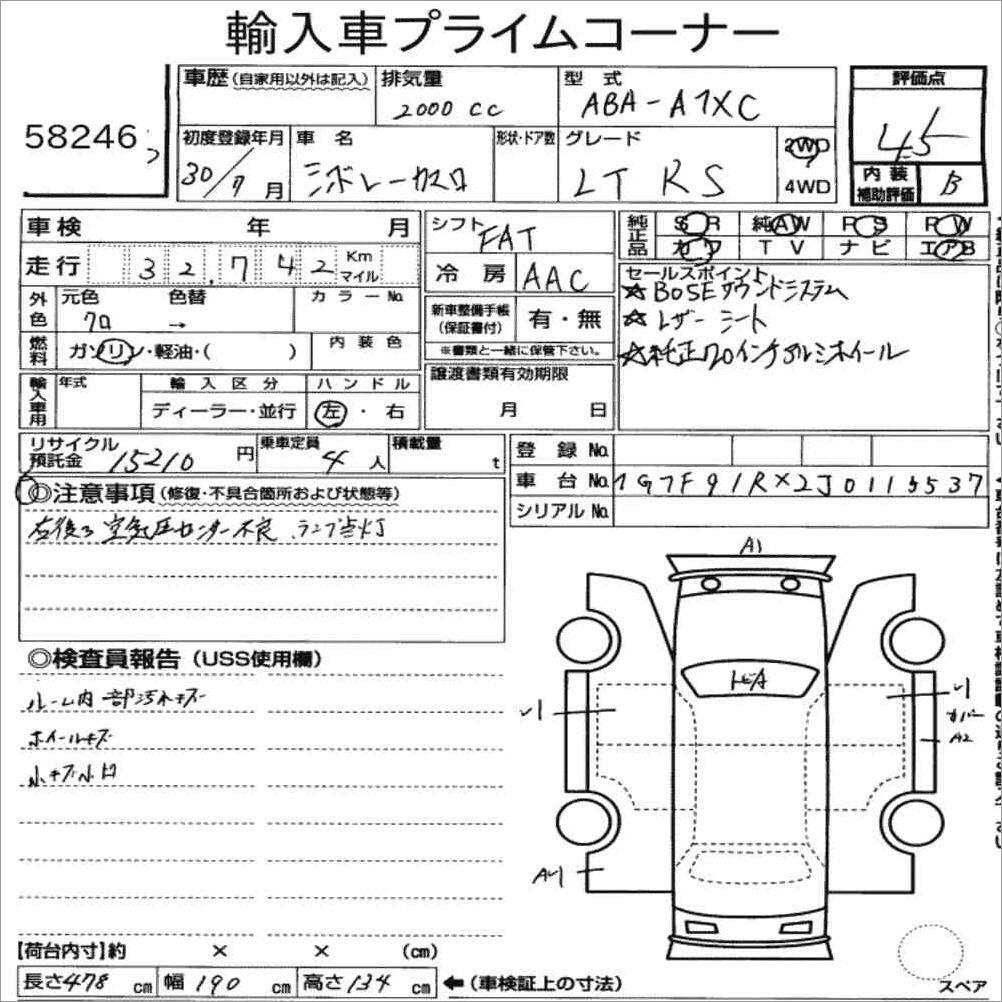 輸入車プライムコーナー
58246
車歴(自家用以外は記入) 排気量 2000cc 型式 ABA-A1XC
評価点 4.5
内装補助評価 B
初度登録年月 30/7月 車名 シボレーカマロ 形状・ドア数 グレード LT RS 2WD 4WD
車検 年 月
走行 32,742 Km マイル
外色 元色 クロ 色替 → カラーNo.
燃料 ガソリン・軽油・( ) 内装色
輸入車用 年式 輸入区分 ディーラー・並行 ハンドル 左・右
シフト FAT
冷房 AAC
新車整備手帳(保証書付) 有・無
※書類と一緒に保管下さい。
譲渡書類有効期限
月 日
純正品 SR 純AW PS PW
カワ TV ナビ エアB
セールスポイント
☆BOSEサウンドシステム
☆レザーシート
☆純正20インチアルミホイール
リサイクル預託金 15210円 乗車定員 4人 積載量 t
登録No.
車台No. 1G1F91RX2J0115537
シリアルNo.
◎注意事項(修復・不具合箇所および状態等)
右後ろ空気圧センサー不良 ランプ点灯
◎検査員報告(USS使用欄)
ルーム内部汚れキズ
ホイールキズ
小キズ小凹
A1
トビA
カバー
A2
【荷台内寸】約 × × (cm)
長さ478cm 幅190cm 高さ134cm ←(車検証上の寸法)
スペア